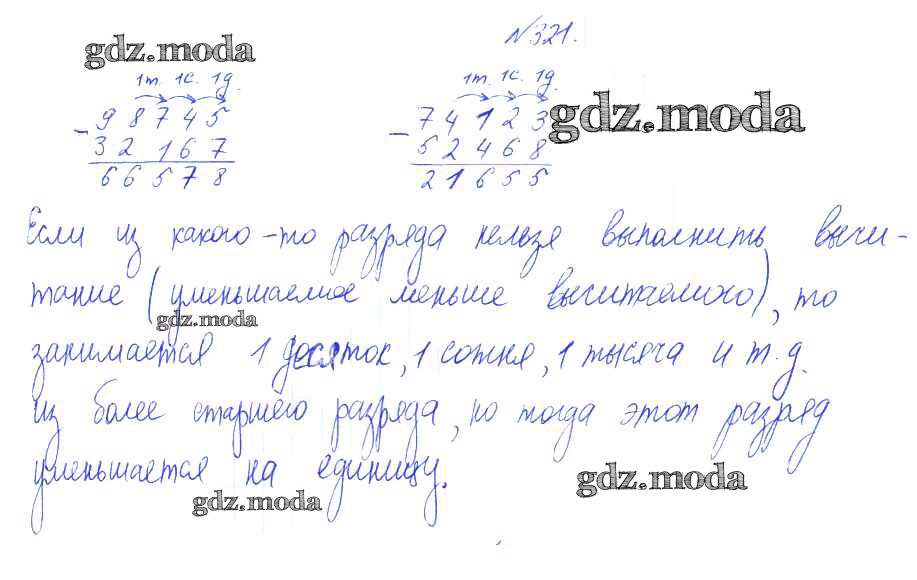 №321.
gdz.moda
1т. 1с. 1д. 1т. 1с. 1д.
- 98745 - 74123 gdz.moda
32167 52468
66578 21655
Если из какого-то разряда нельзя выполнить вычи-
тание (уменьшаемое меньше вычитаемого), то
gdz.moda
занимается 1 десяток, 1 сотня, 1 тысяча и т.д.
из более старшего разряда, но тогда этот разряд
уменьшается на единицу.
gdz.moda
gdz.moda